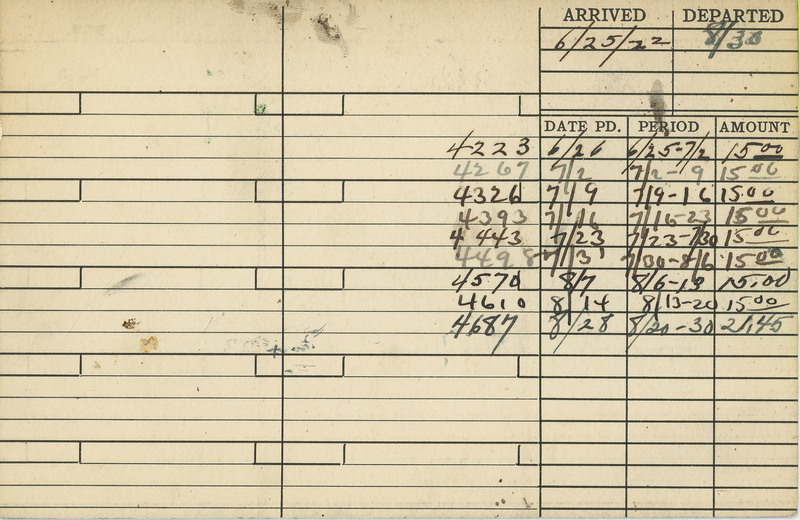 ARRIVED DEPARTED
6/25/22 8/30
DATE PD. PERIOD AMOUNT
4223 6/26 6/25-7/2 15.00
4267 7/2 7/2-9 15.00
4326 7/9 7/9-16 15.00
4393 7/16 7/16-23 15.00
4443 7/23 7/23-7/30 15.00
4498 7/31 7/30-8/6 15.00
4570 8/7 8/6-13 15.00
4610 8/14 8/13-20 15.00
4687 8/28 8/20-30 21.45